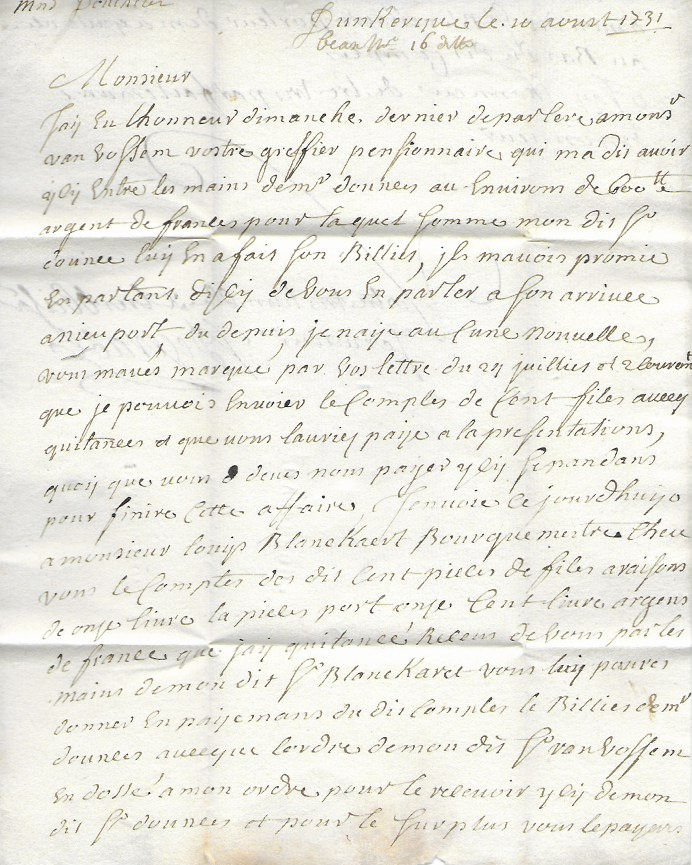 Dunkerque le 10 avust 1731
16 dito
Monsieur
Jaij Eu lhonneur dimanche, dernier de parlere a monsr
van vossem vostre greffier pensionnaire qui ma dis avoir
ycij Entre les mains de mr dounees au Environs de 600 tt
argent de frances pour laquel Somme mon dis Sr
dounee luij En a fais Son Billies, jls mavois promie
En partans, dicij de vous En parler a Son arrivee
a nieuport, du depuis, je naije aucune nouvelle,
vous maves marque par vos lettre du 29 juillies et 2 Couvrant
que je pouvois Envoier le Comptes de Cent files avecq
quitances et que vous lauriez paije a la presentations,
quoij que vous deves nous payer ycij Sependans
pour finire Cette affaire, Jenvoie Ce jourdhuije
a monsieur louijs BlaneKaert Bourquemestre Cheu
vous le Comptes des dis Cent pieces de files a raisons
de onze livre la pieces port onze Cent livre argens
de france que jaij quitancé Receus de vous par les
mains de mon dis Sr BlaneKaret vous luij poures
donner En paijemans du dis Comptes le Billies de mr
dounees avecque lordre de mon dis Sr van vossem
En dossé a mon ordre pour le recevoir ycij de mon
dis Sr dounees et pour le Surplus vous le payers